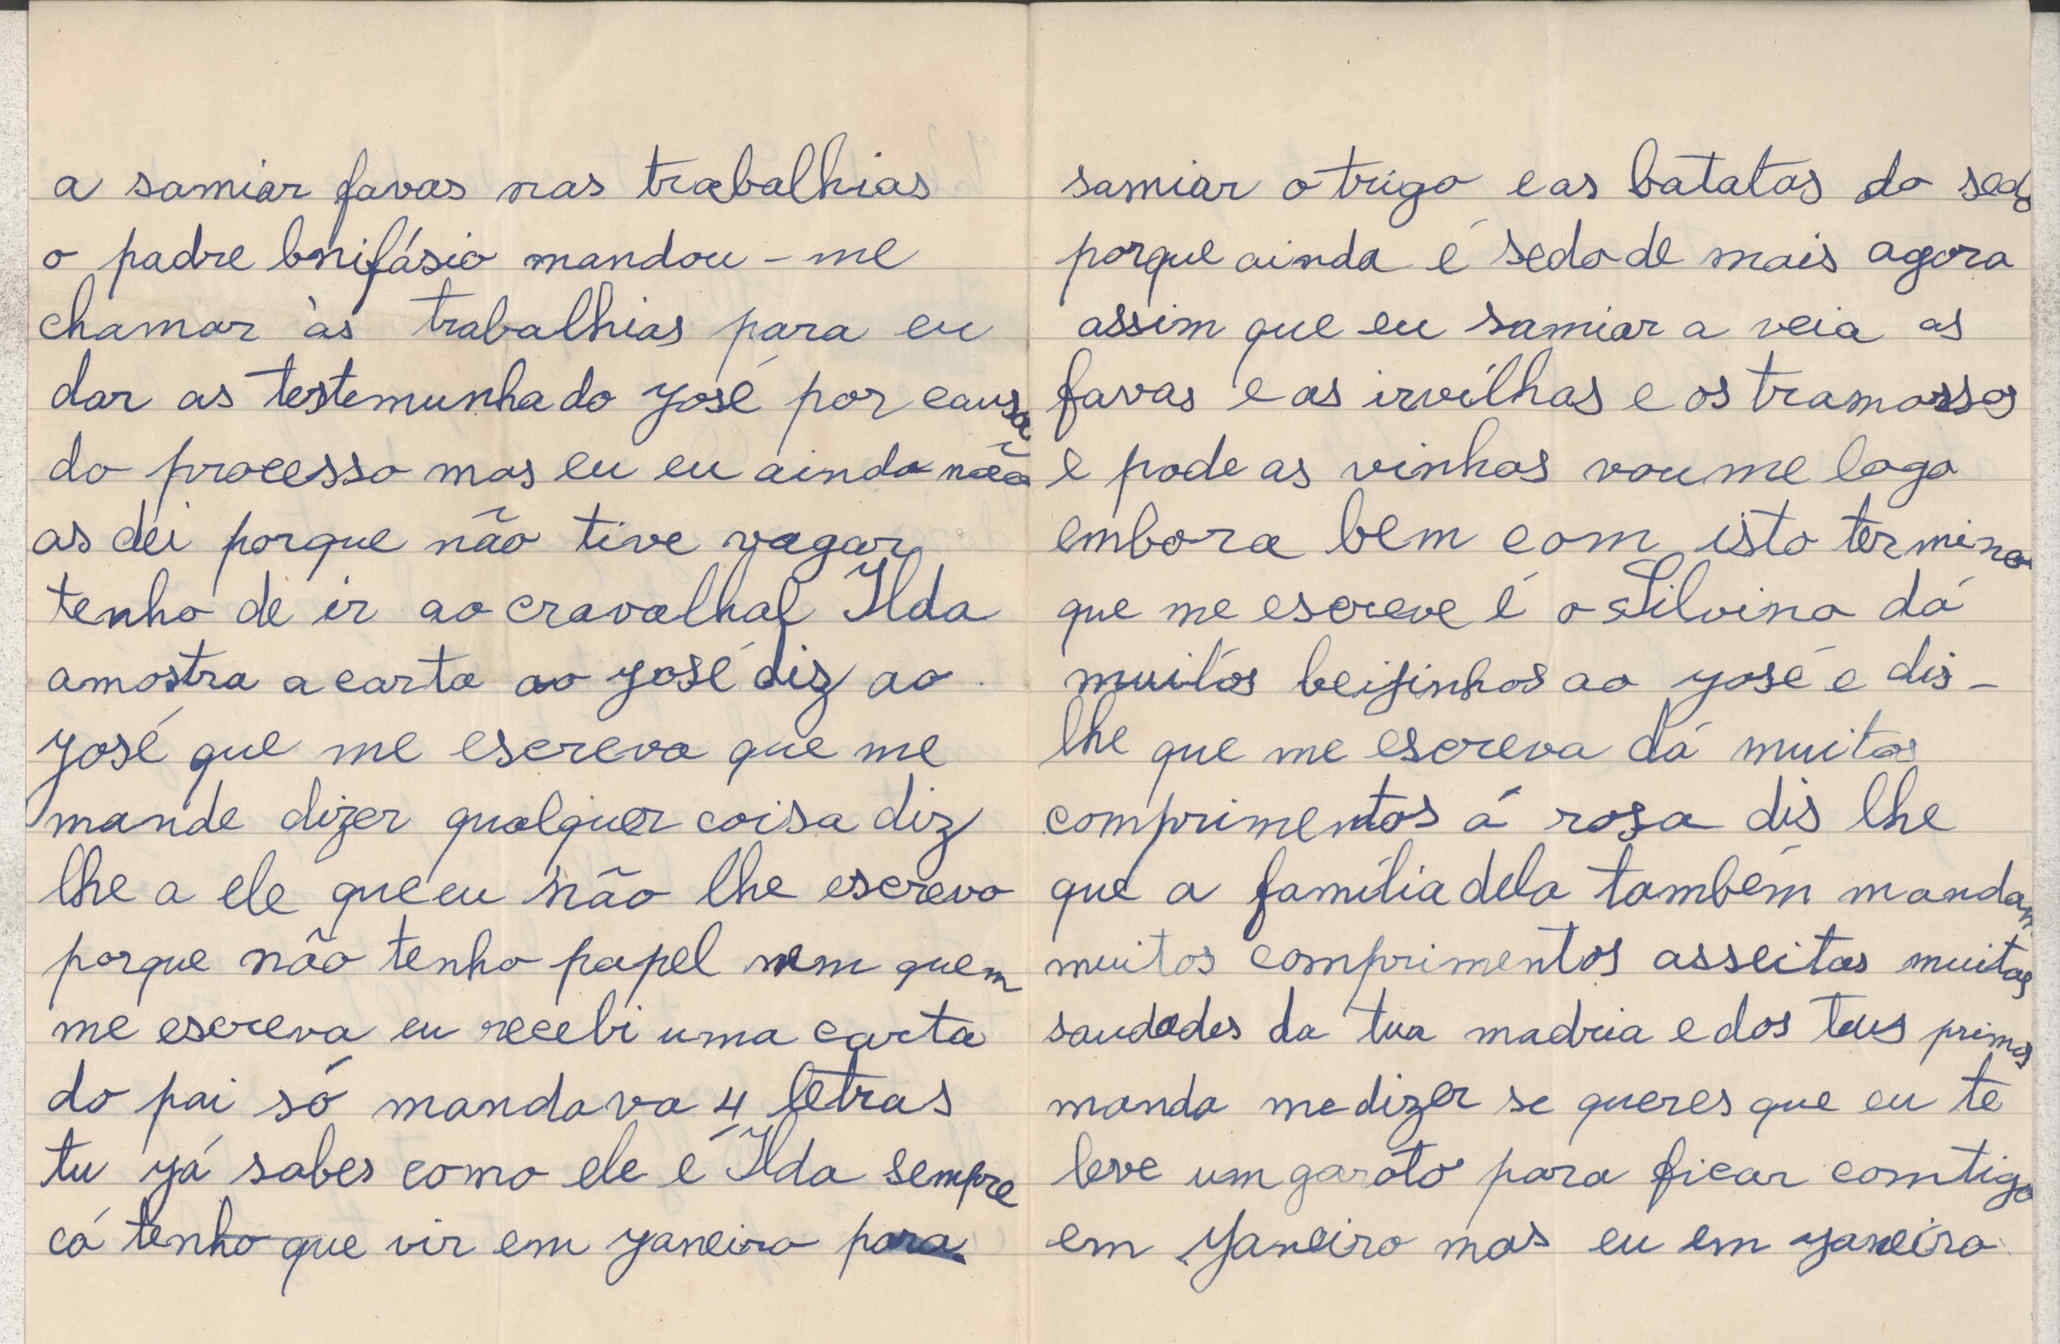 a samiar favas nas trabalhias
o padre bnifásio mandou-me
chamar às trabalhias para eu
dar as testemunha do José por causa
do processo mas eu eu ainda não
as dei porque não tive vagar
tenho de ir ao cravalhal Ilda
amostra a carta ao José diz ao
José que me escreva que me
mande dizer qualquer coisa diz
lhe a ele que eu não lhe escrevo
porque não tenho papel nem quem
me escreva eu recebi uma carta
do pai só mandava 4 letras
tu já sabes como ele é Ilda sempre
cá tenho que vir em janeiro para
samiar o trigo e as batatas do sedo
porque ainda é sedo de mais agora
assim que eu samiar a veia as
favas e as irvilhas e os tramossos
e pode as vinhas vou me logo
embora bem com isto termino
que me escreve é o Silvino dá
muitos beijinhos ao José e dis-
lhe que me escreva dá muitos
comprimentos á rosa dis lhe
que a família dela também mandam
muitos comprimentos asseitas muitas
saudades da tua madria e dos teus primos
manda me dizer se queres que eu te
leve um garoto para ficar comtigo
em Janeiro mas eu em janeiro